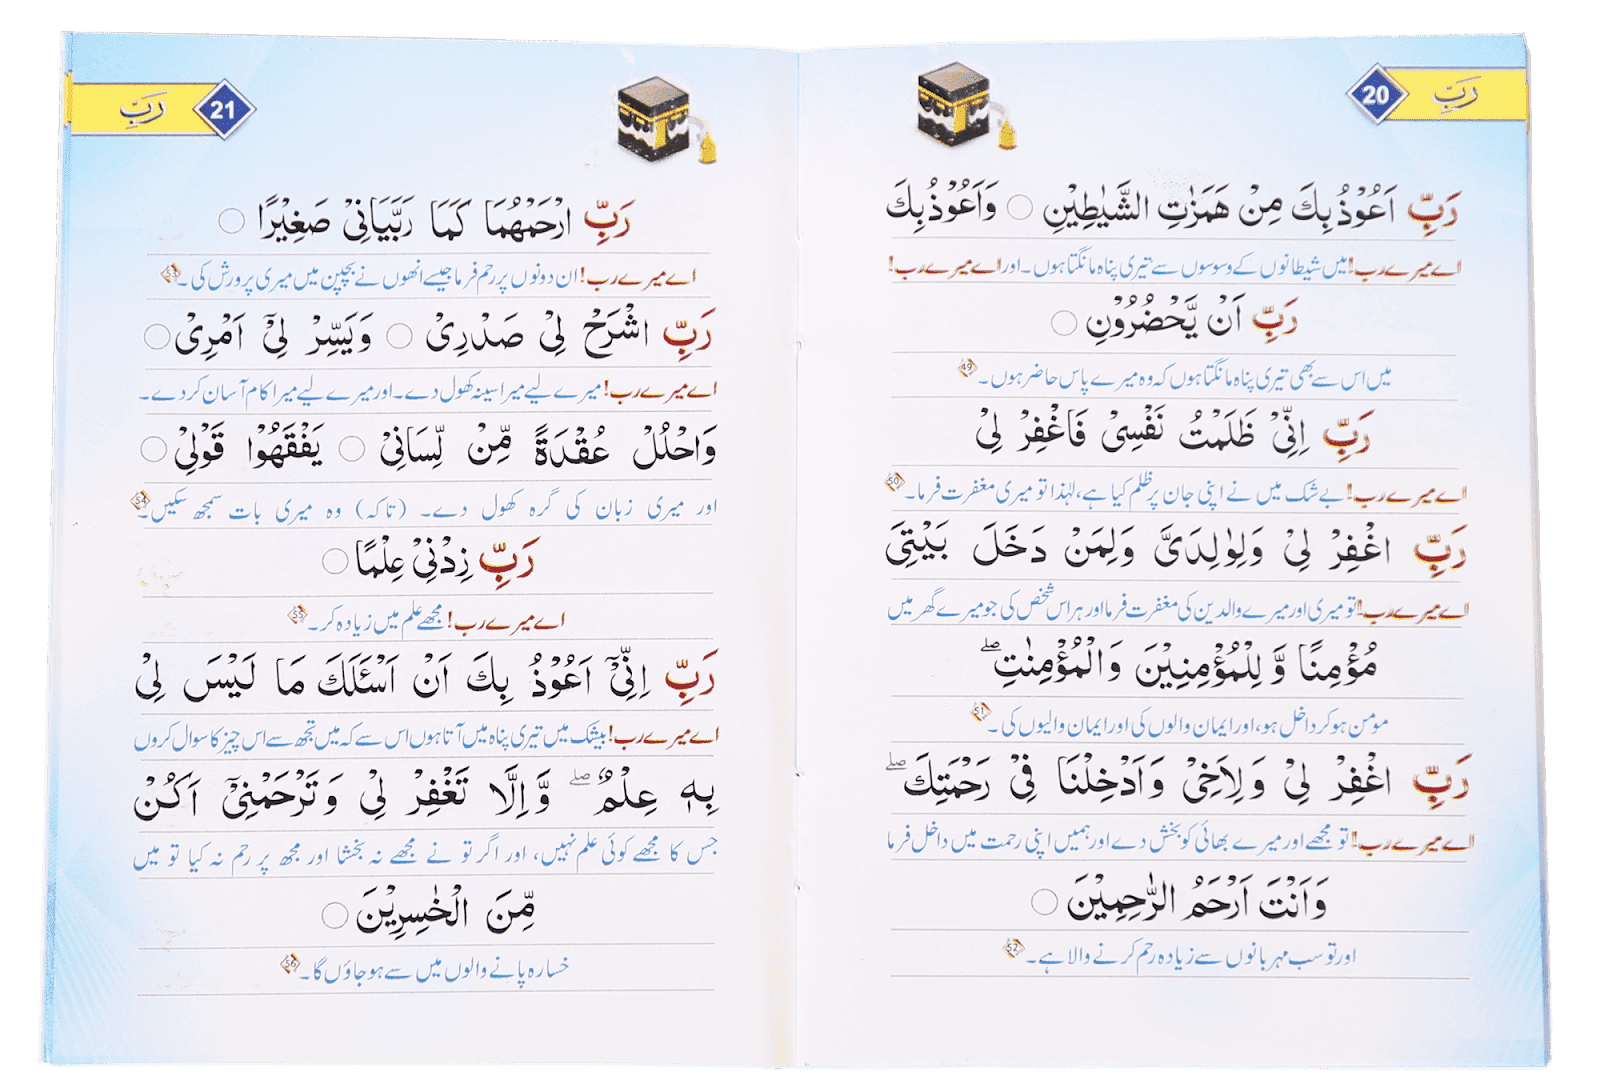 رَبِّ
20
رَبِّ اَعُوْذُ بِكَ مِنْ هَمَزٰتِ الشَّيٰطِيْنِ ○ وَاَعُوْذُ بِكَ
اے میرے رب! میں شیطانوں کے وسوسوں سے تیری پناہ مانگتا ہوں۔ اور اے میرے رب!
رَبِّ اَنْ يَّحْضُرُوْنِ ○
میں اس سے بھی تیری پناہ مانگتا ہوں کہ وہ میرے پاس حاضر ہوں۔ 49
رَبِّ اِنِّىْ ظَلَمْتُ نَفْسِىْ فَاغْفِرْ لِىْ
اے میرے رب! بے شک میں نے اپنی جان پر ظلم کیا ہے، لہٰذا تو میری مغفرت فرما۔ 50
رَبِّ اغْفِرْ لِىْ وَلِوَالِدَىَّ وَلِمَنْ دَخَلَ بَيْتِىَ
اے میرے رب! تو میری اور میرے والدین کی مغفرت فرما اور ہر اس شخص کی جو میرے گھر میں
مُؤْمِنًا وَّ لِلْمُؤْمِنِيْنَ وَالْمُؤْمِنٰتِ ۖ
مومن ہو کر داخل ہو، اور ایمان والوں کی اور ایمان والیوں کی۔ 51
رَبِّ اغْفِرْ لِىْ وَلِاَخِىْ وَاَدْخِلْنَا فِىْ رَحْمَتِكَ ۖ
اے میرے رب! تو مجھے اور میرے بھائی کو بخش دے اور ہمیں اپنی رحمت میں داخل فرما
وَاَنْتَ اَرْحَمُ الرّٰحِمِيْنَ ○
اور تو سب مہربانوں سے زیادہ رحم کرنے والا ہے۔ 52
رَبِّ
21
رَبِّ ارْحَمْهُمَا كَمَا رَبَّيَانِىْ صَغِيْرًا ○
اے میرے رب! ان دونوں پر رحم فرما جیسے انھوں نے بچپن میں میری پرورش کی۔ 53
رَبِّ اشْرَحْ لِىْ صَدْرِىْ ○ وَيَسِّرْ لِىْٓ اَمْرِىْ ○
اے میرے رب! میرے لیے میرا سینہ کھول دے۔ اور میرے لیے میرا کام آسان کر دے۔
وَاحْلُلْ عُقْدَةً مِّنْ لِّسَانِىْ ○ يَفْقَهُوْا قَوْلِىْ ○
اور میری زبان کی گرہ کھول دے۔ (تاکہ) وہ میری بات سمجھ سکیں۔ 54
رَبِّ زِدْنِىْ عِلْمًا ○
اے میرے رب! مجھے علم میں زیادہ کر۔ 55
رَبِّ اِنِّىْٓ اَعُوْذُ بِكَ اَنْ اَسْئَلَكَ مَا لَيْسَ لِىْ
اے میرے رب! بیشک میں تیری پناہ میں آتا ہوں اس سے کہ میں تجھ سے اس چیز کا سوال کروں
بِهٖ عِلْمٌ ۖ وَّاِلَّا تَغْفِرْ لِىْ وَتَرْحَمْنِىْٓ اَكُنْ
جس کا مجھے کوئی علم نہیں، اور اگر تو نے مجھے نہ بخشا اور مجھ پر رحم نہ کیا تو میں
مِّنَ الْخٰسِرِيْنَ ○
خسارہ پانے والوں میں سے ہو جاؤں گا۔ 56